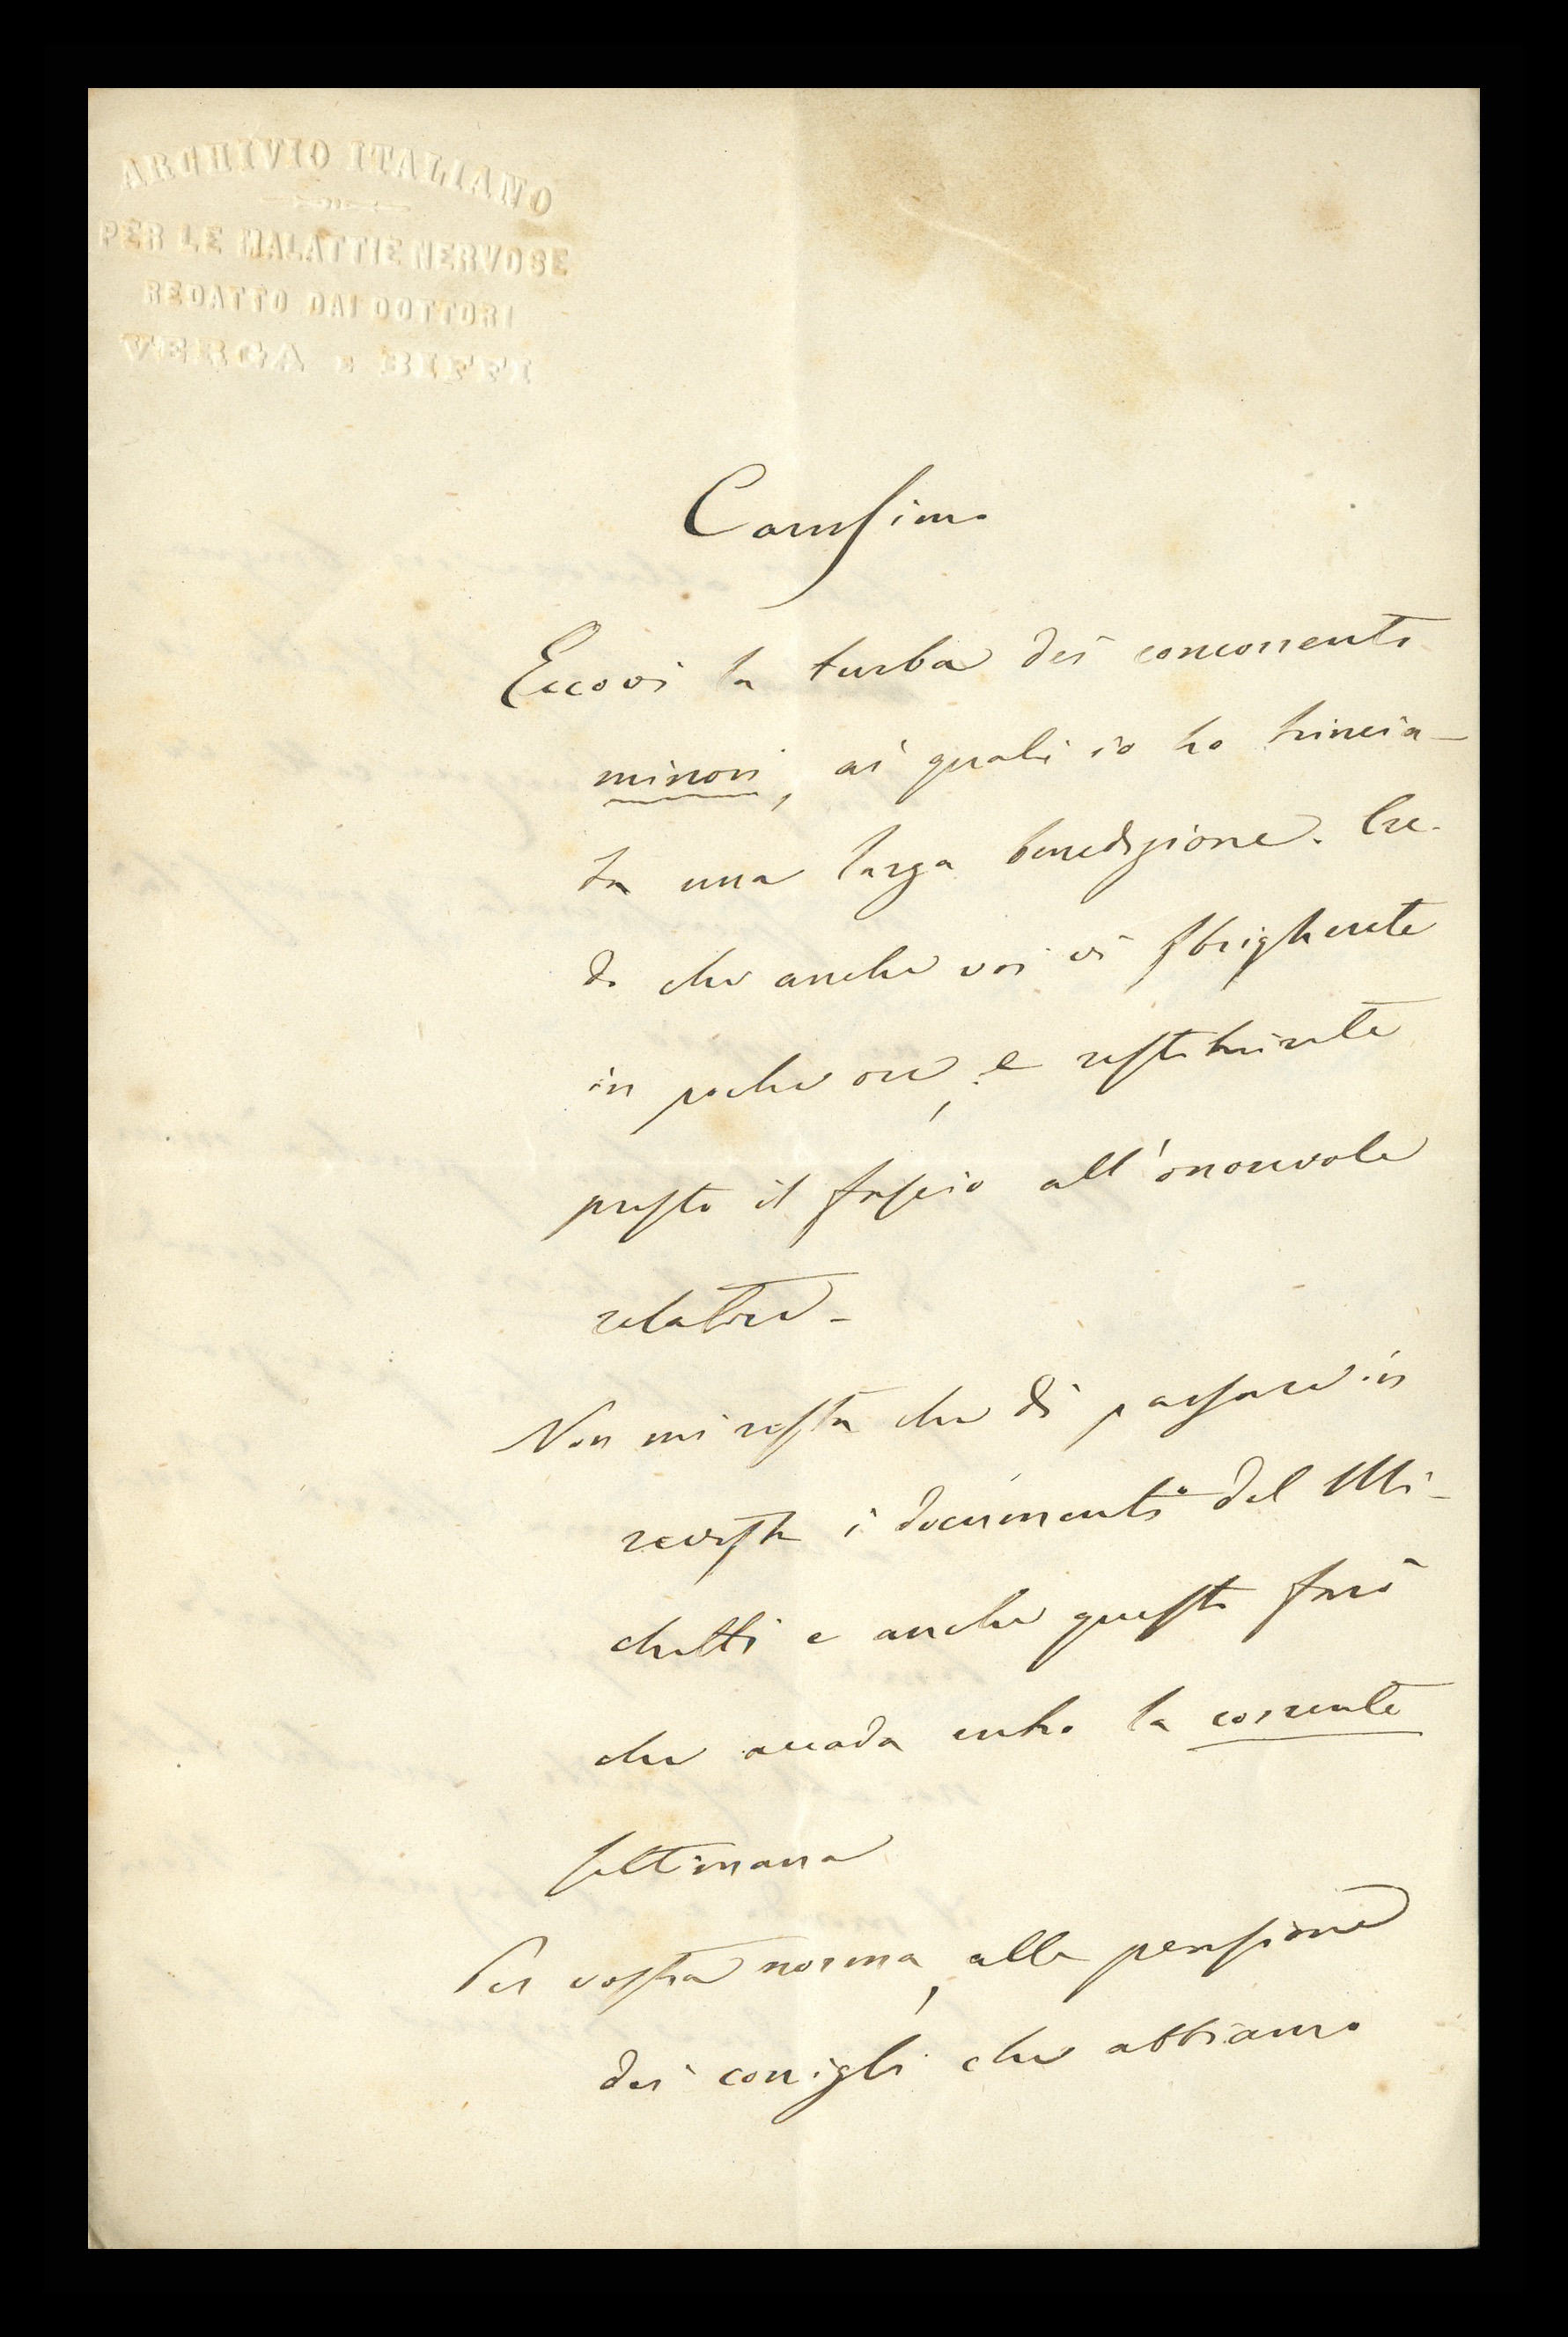 ARCHIVIO ITALIANO
PER LE MALATTIE NERVOSE
REDATTO DAI DOTTORI
VERGA E BIFFI
Carissimo
Eccovi la turba dei concorrenti
minori, ai quali io ho trincia-
ta una larga benedizione. Cre-
do che anche voi vi sbrigherete
in poche ore, e restituirete
presto il fascio all'onorevole
relatore -
Non mi resta che di passare in
revista i documenti del Mi-
chetti e anche questo farò
che accada entro la corrente
settimana
Per vostra norma, alla pensione
dei conigli che abbiamo